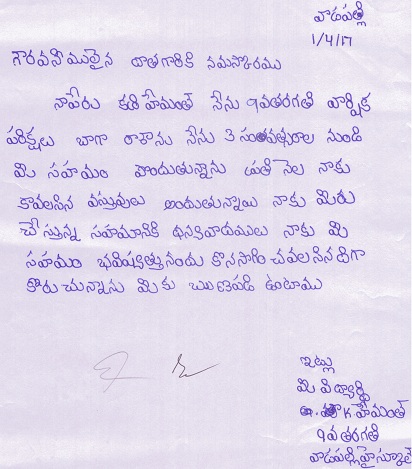 వాడపల్లి
1/4/17
గౌరవనీములైన దాతగారికి నమస్కారము
నాపేరు కె హేమంత్ నేను 9వతరగతి వార్షిక
పరిక్షలు బాగా రాశాను నేను 3 సంవత్సరాల నుండి
మి సహమం పొందుతున్నాను ప్రతి నెల నాకు
కావలసిన వస్తువులు అందుతున్నాయి నాకు మిరు
చేస్తున్న సహమానికి ధన్యవాదములు నాకు మి
సహమం భవిష్యత్తునందు కొనసాగించవలసినదిగా
కొరుచున్నాను మికు ఋణపడి ఉంటాము
ఇట్లు
మి విద్యార్థి
K.హేమంత్
9వతరగతి
వాడపల్లి హైస్కూల్